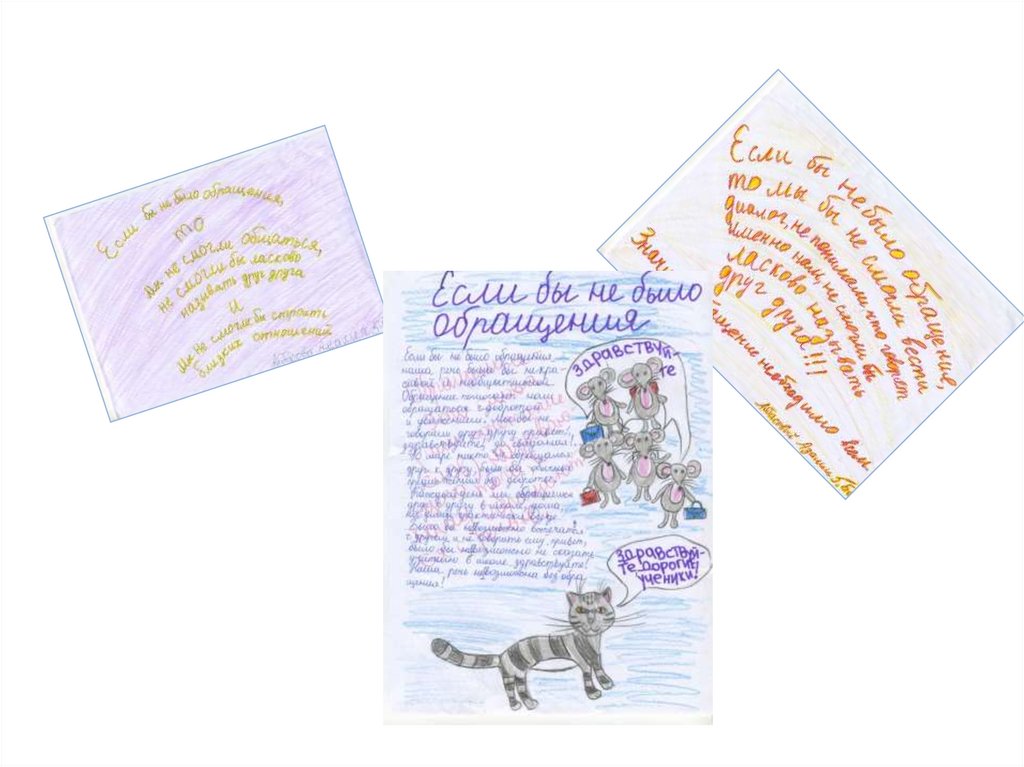 Если бы не было обращения,
то
Мы не смогли общаться,
не смогли бы ласково
называть друг друга
и
Мы не смогли бы строить
близких отношений
Если бы не было
обращения
Если бы не было обращения,
наша речь была бы не кра-
сивой и
Обращение помогает нам
обращаться с добротой
и
говорили друг другу привет!,
здравствуйте! до свидания!.
В мире никто не обращался
друг к другу, было бы
Каждый день мы обращаемся
друг к другу в школе, дома,
Было бы невозможно встречать
с другом и не говорить ему, привет,
было бы невозможно не сказать
учителю в школе здравствуйте!
Наша речь невозможна без обра-
щения!
Здравствуй-
те
Здравствуй-
те дорогие
ученики!
Если бы небыло обращение,
то мы бы не смогли вести
диалог, не понимали кто говорит
именно нам, не смогли бы
ласково называть
друг друга!!!
Значит
обращение необходимо всем.